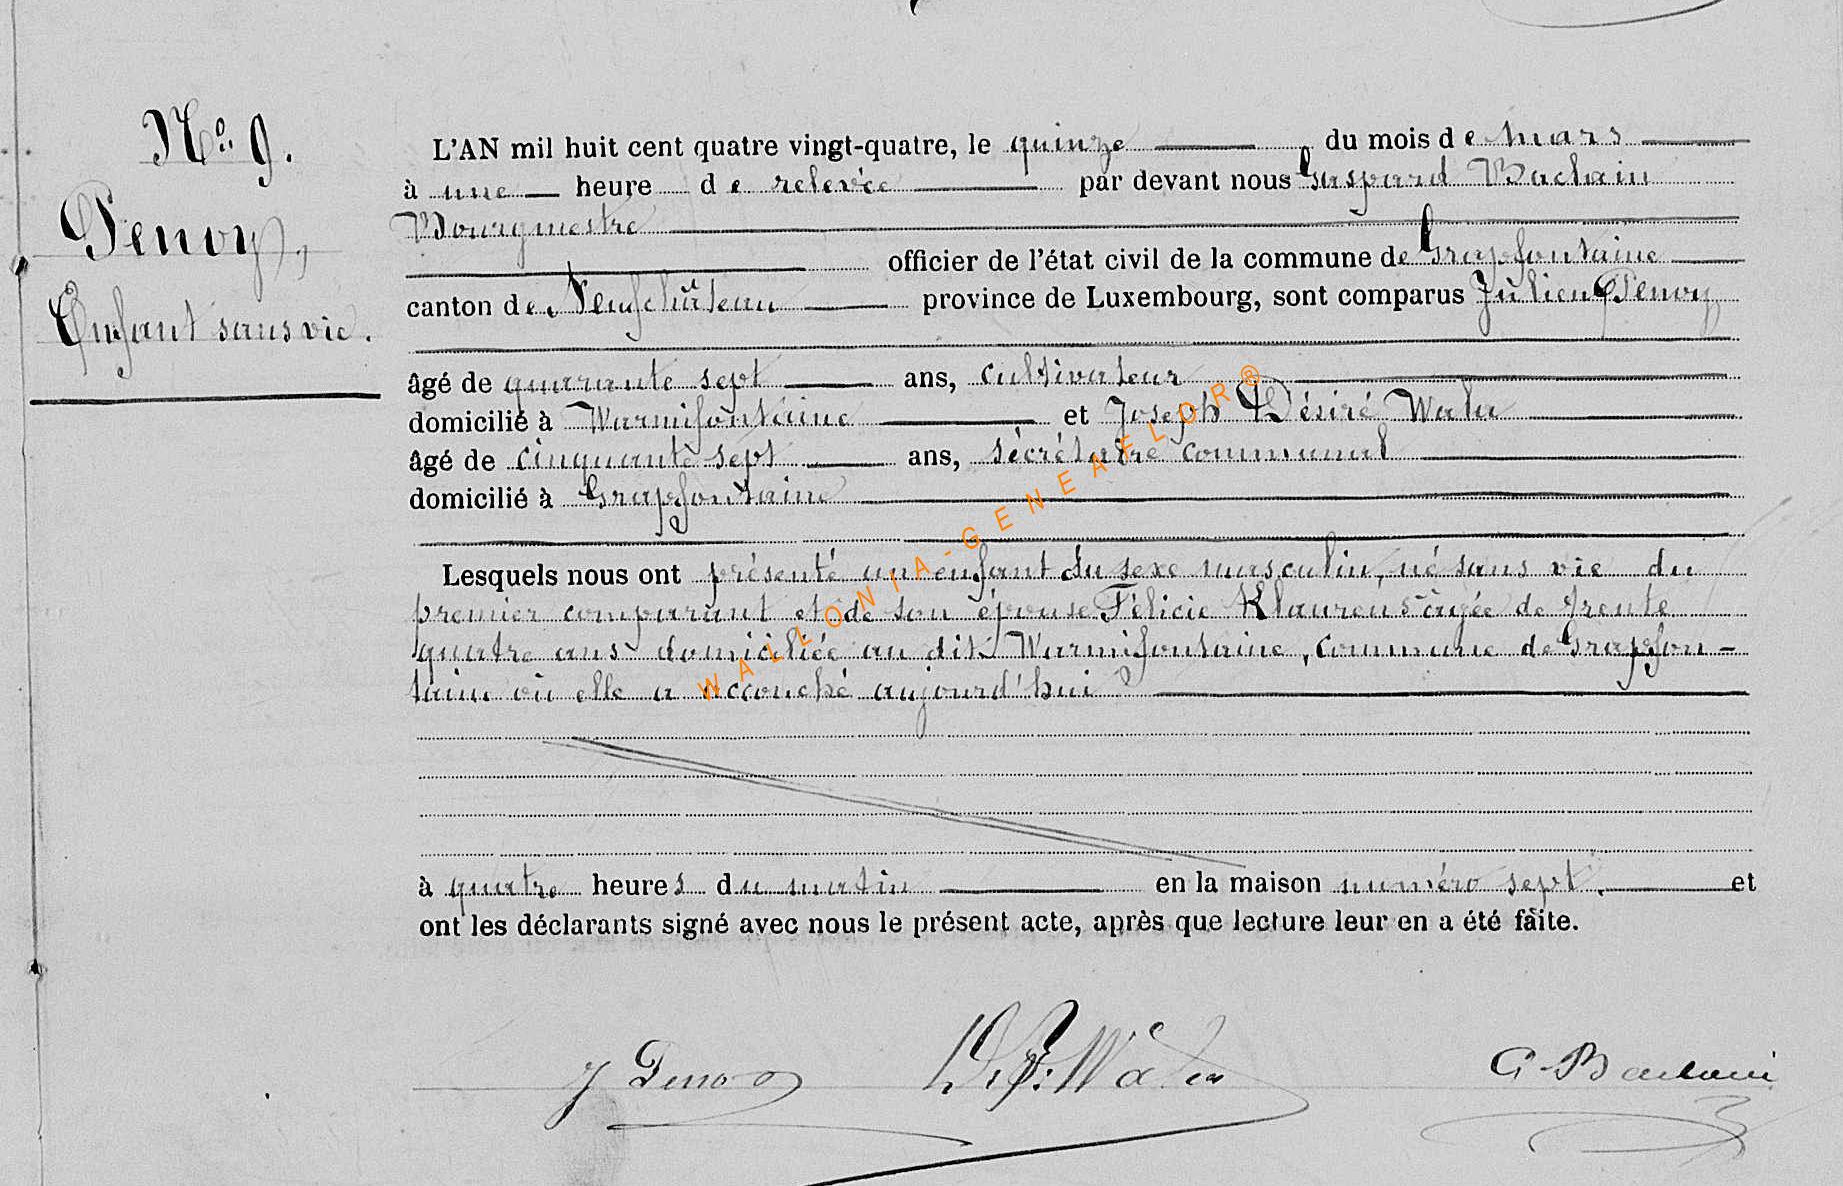 No. 9.
Penoy,
Enfant sans vie.
L'AN mil huit cent quatre vingt-quatre, le quinze du mois de mars
à une heure de relevée par devant nous Gaspard Bachain
Bourgmestre
officier de l'état civil de la commune de Grapfontaine
canton de Neufchâteau province de Luxembourg, sont comparus Julien Penoy
âgé de quarante sept ans, cultivateur
domicilié à Warmifontaine et Joseph Désiré Wala
âgé de cinquante sept ans, sécrétaire communal
domicilié à Grapfontaine
Lesquels nous ont présenté un enfant du sexe masculin, né sans vie du
premier comparant et de son épouse Félicie âgée de trente
quatre ans domiciliée au dit Warmifontaine, commune de Grapfon-
taine où elle a accouché aujourd'hui
à quatre heures du matin en la maison numéro sept. et
ont les déclarants signé avec nous le présent acte, après que lecture leur en a été faite.
J Penoy
G. Bachain
WALLONIA-GENEAFLOR®